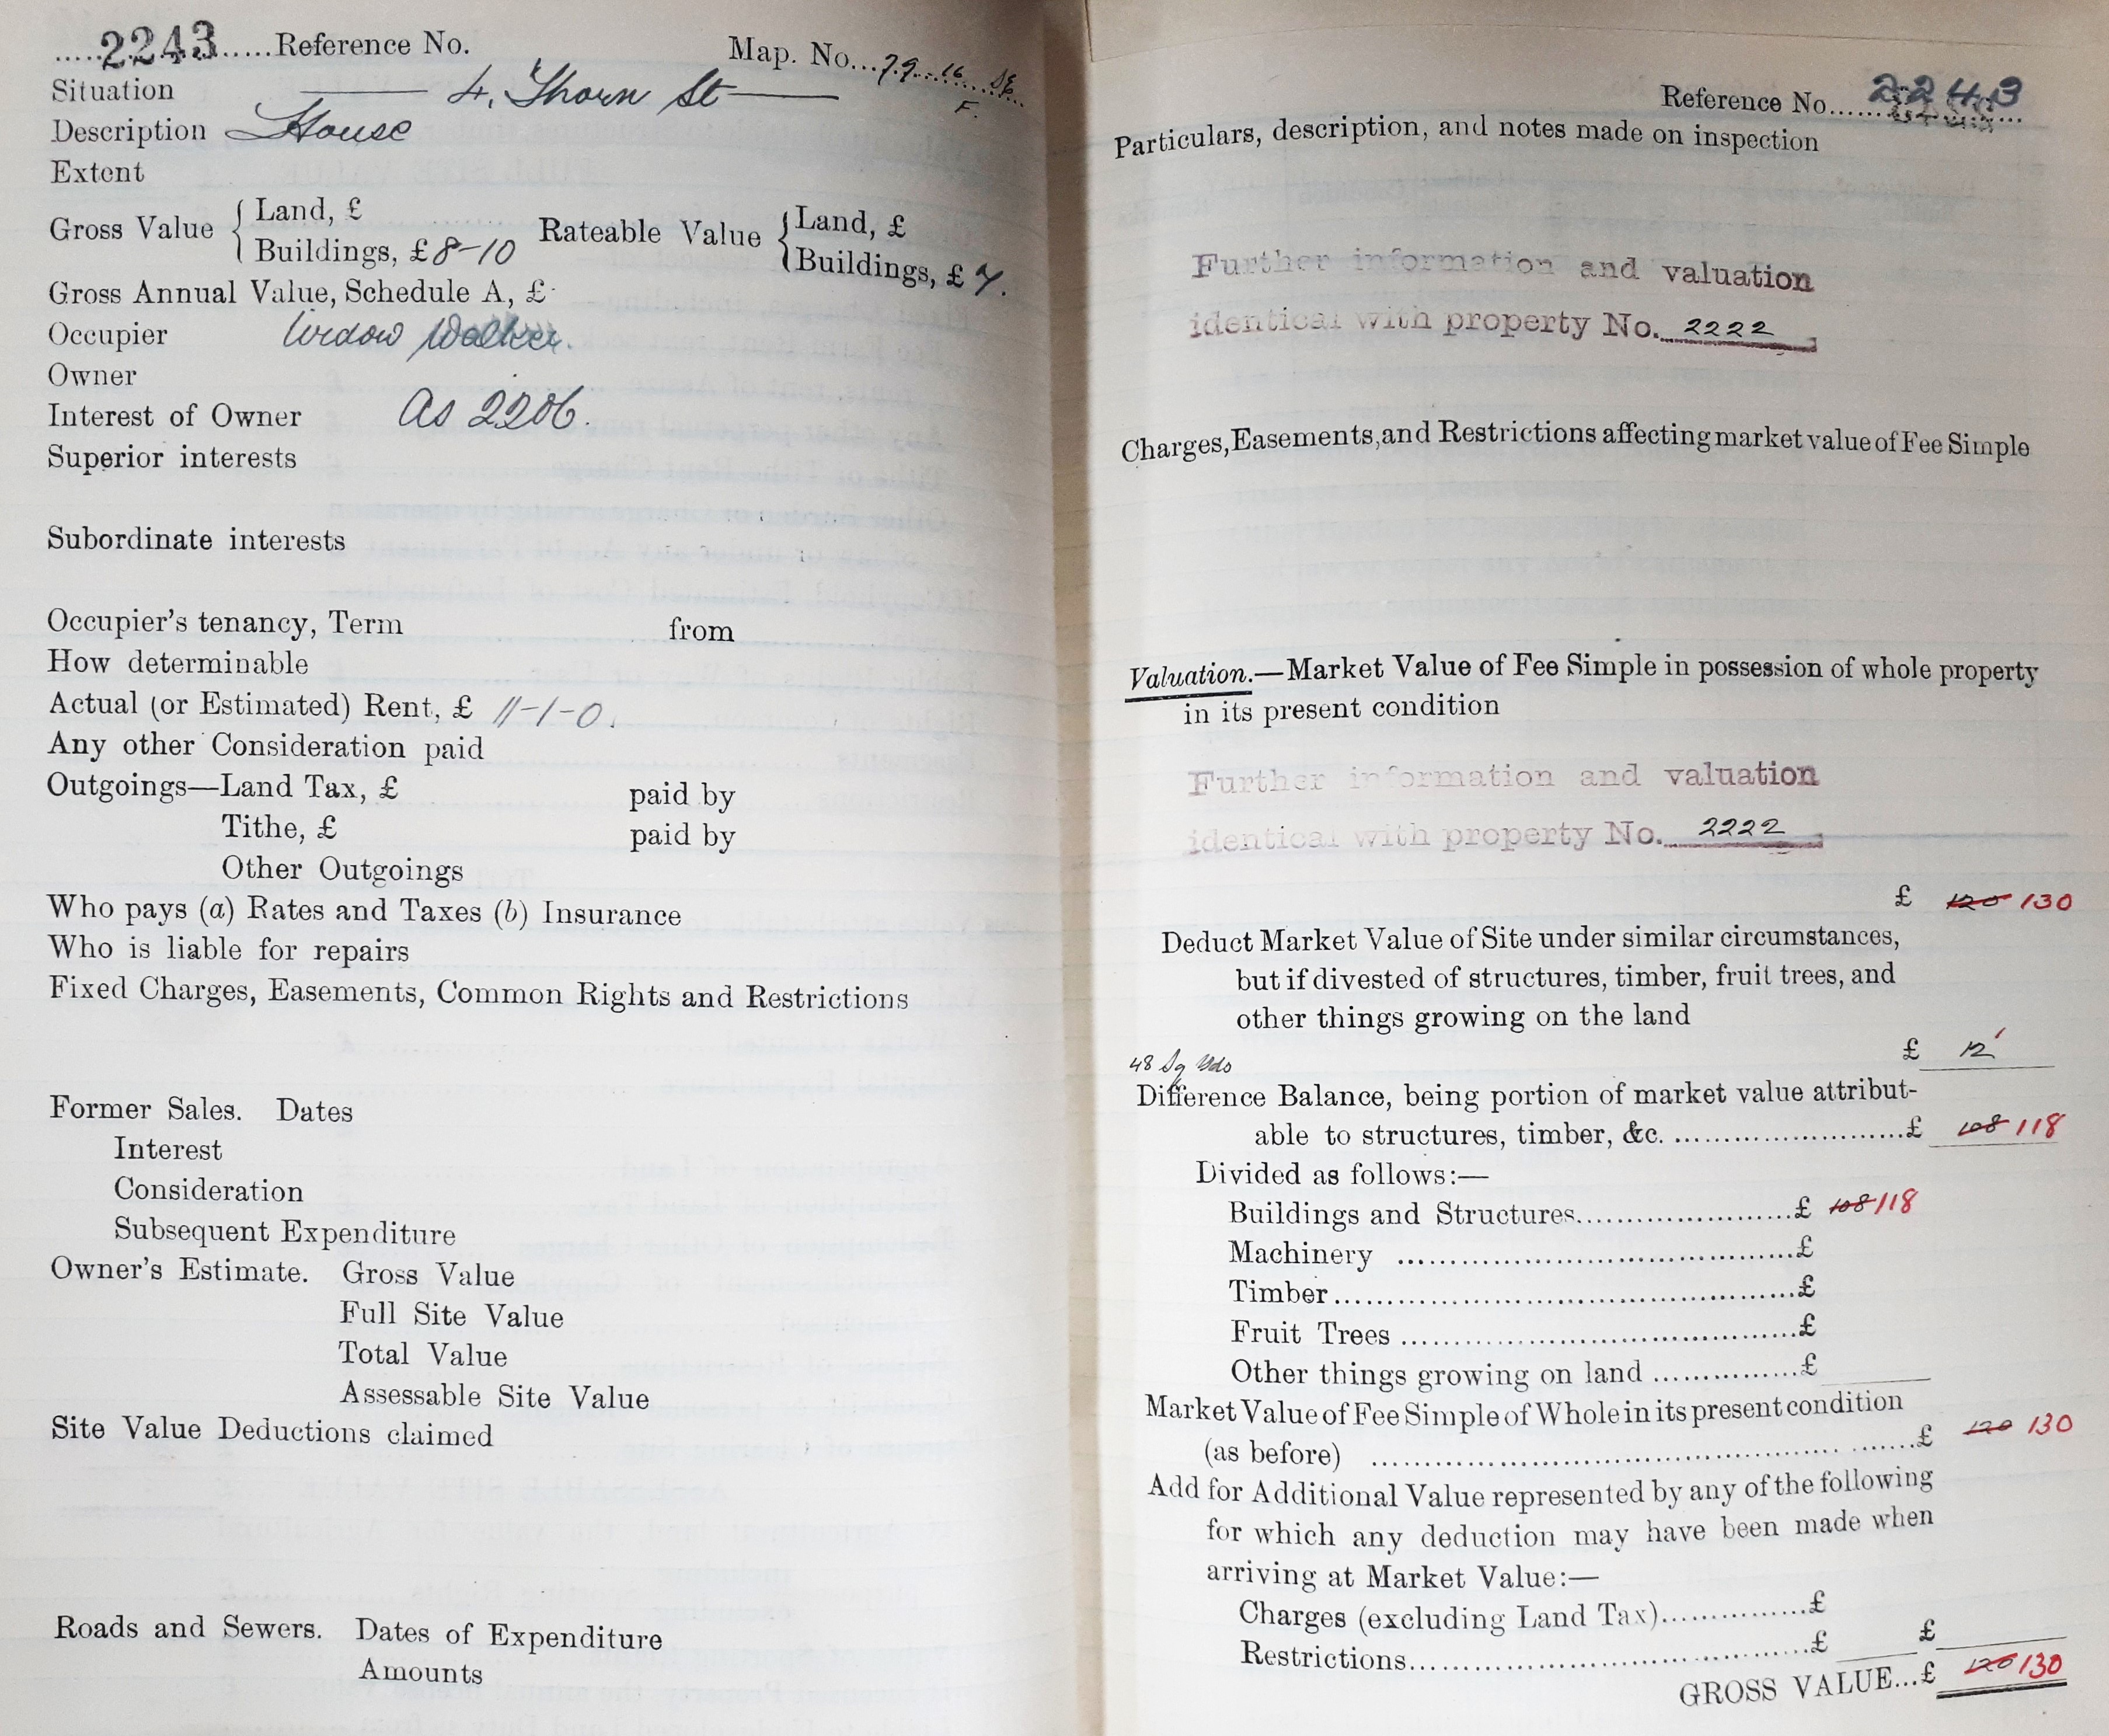 2243 Reference No.
Map. No. 79. 16. SE
F.
Situation 4, Thorn St
Description House
Extent
Gross Value { Land, £
Buildings, £ 8-10
Rateable Value { Land, £
Buildings, £ 7.
Gross Annual Value, Schedule A, £
Occupier Widow Walker.
Owner
Interest of Owner As 2206.
Superior interests
Subordinate interests
Occupier's tenancy, Term from
How determinable
Actual (or Estimated) Rent, £ 11-1-0.
Any other Consideration paid
Outgoings—Land Tax, £ paid by
Tithe, £ paid by
Other Outgoings
Who pays (a) Rates and Taxes (b) Insurance
Who is liable for repairs
Fixed Charges, Easements, Common Rights and Restrictions
Former Sales. Dates
Interest
Consideration
Subsequent Expenditure
Owner's Estimate. Gross Value
Full Site Value
Total Value
Assessable Site Value
Site Value Deductions claimed
Roads and Sewers. Dates of Expenditure
Amounts
Reference No. 2243
Particulars, description, and notes made on inspection
Further information and valuation
identical with property No. 2222
Charges, Easements, and Restrictions affecting market value of Fee Simple
Valuation.—Market Value of Fee Simple in possession of whole property
in its present condition
Further information and valuation
identical with property No. 2222
£ 120 130
Deduct Market Value of Site under similar circumstances,
but if divested of structures, timber, fruit trees, and
other things growing on the land
£ 12
48 Sq Yds
Difference Balance, being portion of market value attribut-
able to structures, timber, &c. £ 108 118
Divided as follows:—
Buildings and Structures £ 108 118
Machinery £
Timber £
Fruit Trees £
Other things growing on land £
Market Value of Fee Simple of Whole in its present condition
(as before) £ 120 130
Add for Additional Value represented by any of the following
for which any deduction may have been made when
arriving at Market Value:—
Charges (excluding Land Tax) £
Restrictions £ £
GROSS VALUE...£ 120 130